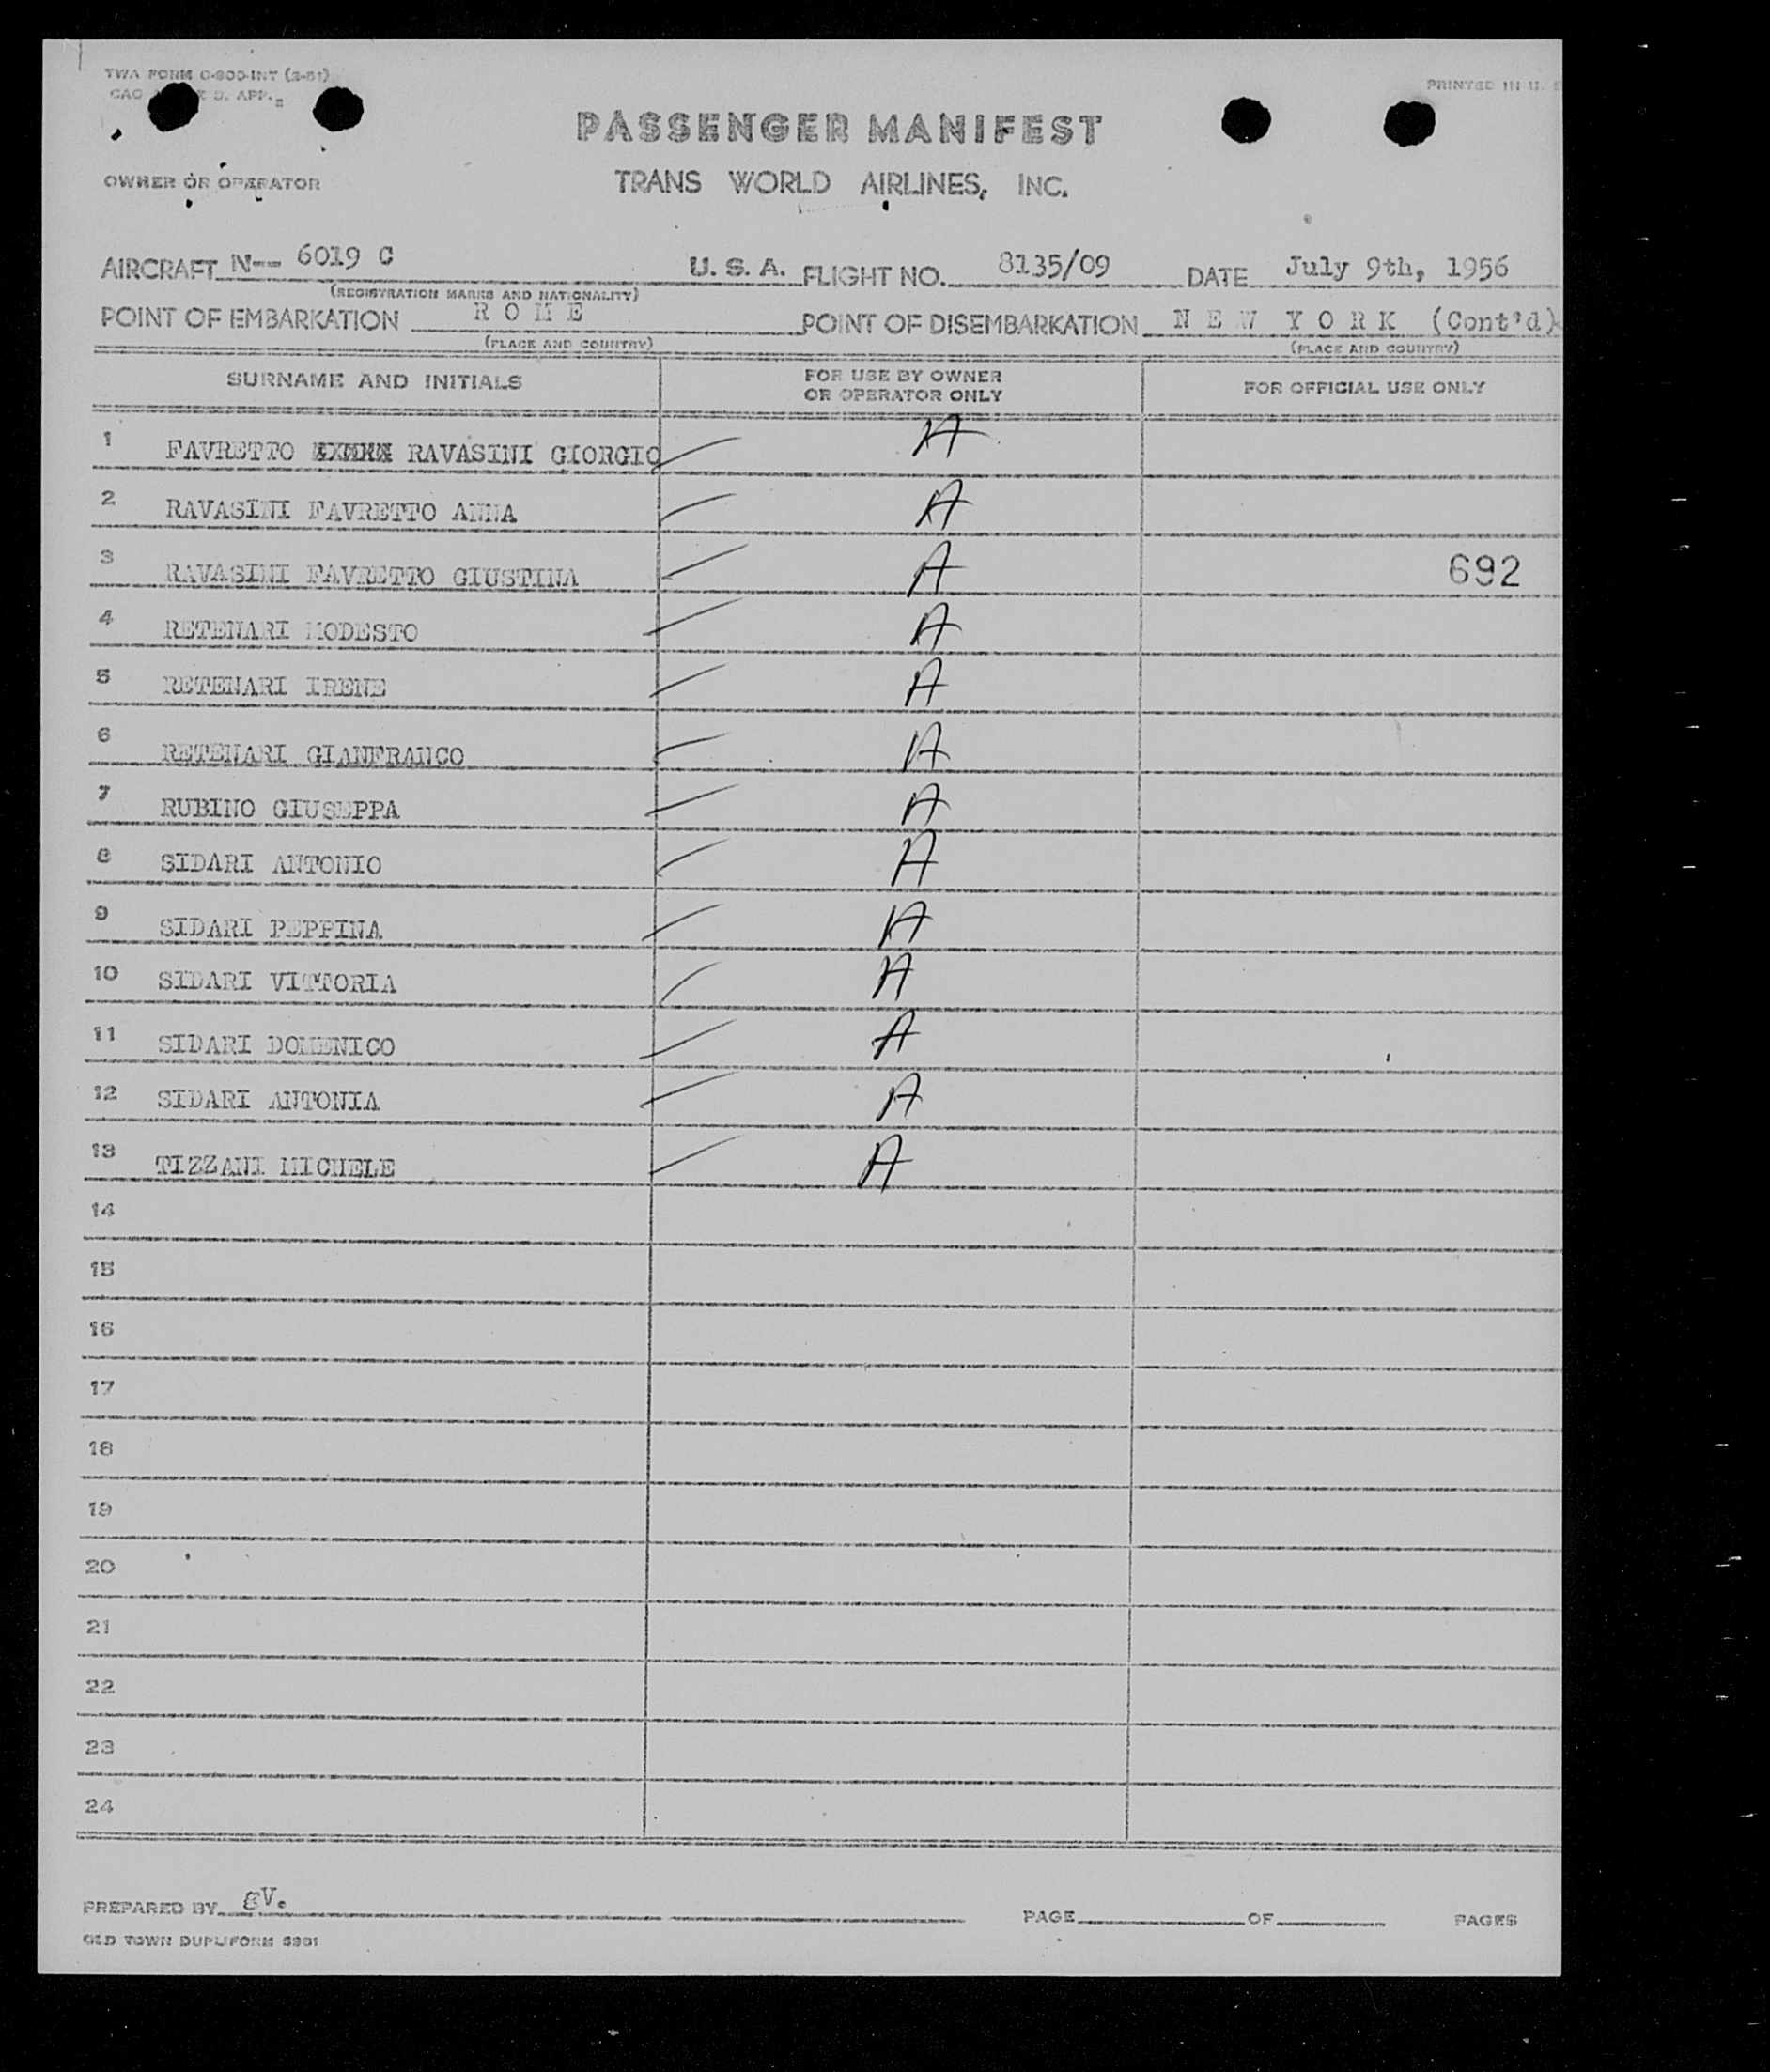 TWA FORM C-800-INT (2-51)
PRINTED IN U. S
CAO D. APP.
PASSENGER MANIFEST
OWNER OR OPERATOR
TRANS WORLD AIRLINES, INC.
AIRCRAFT N-- 6019 C U. S. A. FLIGHT NO. 8135/09 DATE July 9th, 1956
(REGISTRATION MARKS AND NATIONALITY)
POINT OF EMBARKATION R O M E POINT OF DISEMBARKATION N E W Y O R K (Cont'd)
(PLACE AND COUNTRY) (PLACE AND COUNTRY)
SURNAME AND INITIALS FOR USE BY OWNER OR OPERATOR ONLY FOR OFFICIAL USE ONLY
1 FAVRETTO RAVASINI GIORGIO A
2 RAVASINI FAVRETTO ANNA A
3 RAVASINI FAVRETTO GIUSTINA A 692
4 RETENARI MODESTO A
5 RETENARI IRENE A
6 RETENARI GIANFRANCO A
7 RUBINO GIUSEPPA A
8 SIDARI ANTONIO A
9 SIDARI PEPPINA A
10 SIDARI VITTORIA A
11 SIDARI DOMENICO A
12 SIDARI ANTONIA A
13 TIZZANI MICHELE A
14
15
16
17
18
19
20
21
22
23
24
PREPARED BY gV. PAGE OF PAGES
OLD TOWN DUPLIFORM